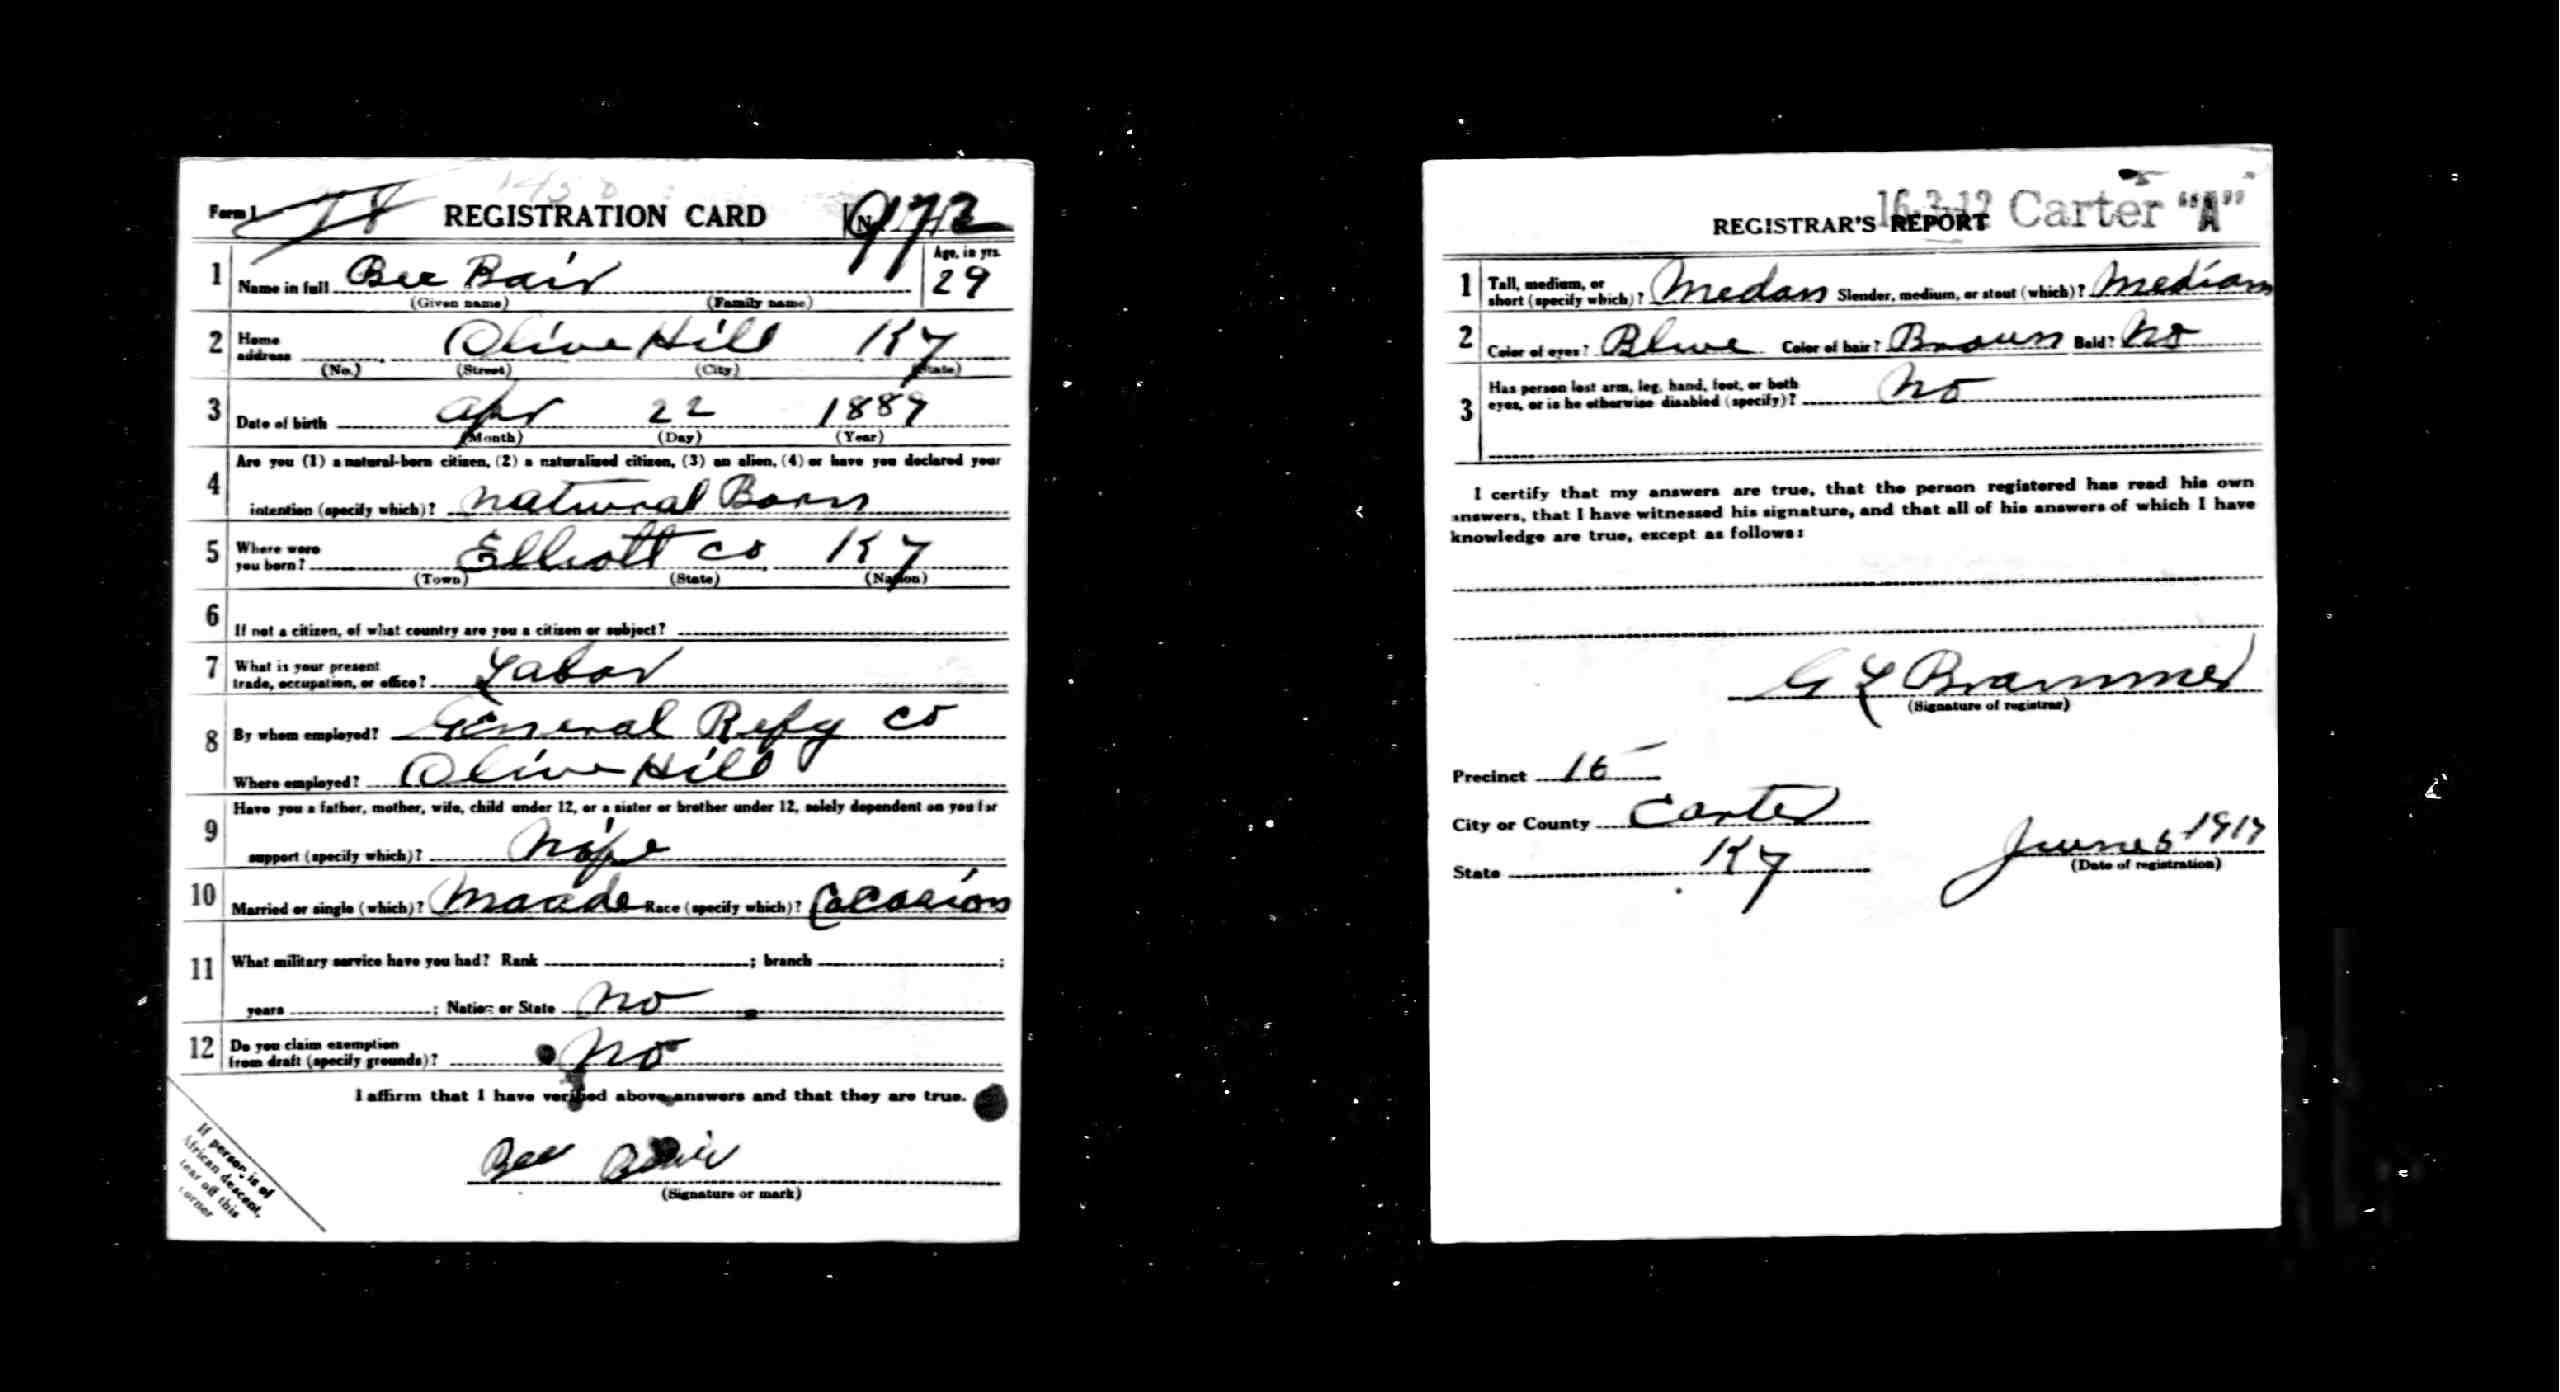 Form 1 78 REGISTRATION CARD No. 972
1 Name in full Bee Bair Age, in yrs. 29
(Given name) (Family name)
2 Home address Olive Hill Ky
(No.) (Street) (City) (State)
3 Date of birth Apr 22 1889
(Month) (Day) (Year)
4 Are you (1) a natural-born citizen, (2) a naturalized citizen, (3) an alien, (4) or have you declared your
intention (specify which)? natural Born
5 Where were you born? Elliott Co Ky
(Town) (State) (Nation)
6 If not a citizen, of what country are you a citizen or subject?
7 What is your present trade, occupation, or office? Labor
8 By whom employed? General Refy Co
Where employed? Olive Hill
9 Have you a father, mother, wife, child under 12, or a sister or brother under 12, solely dependent on you for
support (specify which)?
10 Married or single (which)? Race (specify which)? Cocasion
11 What military service have you had? Rank ; branch ;
years ; Nation or State No
12 Do you claim exemption from draft (specify grounds)? No
I affirm that I have verified above answers and that they are true.
Bee Bair
(Signature or mark)
If person is of
African descent,
tear off this
corner
REGISTRAR'S REPORT 16-3-12 Carter "A"
1 Tall, medium, or short (specify which)? Medan Slender, medium, or stout (which)? Mediam
2 Color of eyes? Blue Color of hair? Broun Bald? No
3 Has person lost arm, leg, hand, foot, or both
eyes, or is he otherwise disabled (specify)? No
I certify that my answers are true, that the person registered has read his own
answers, that I have witnessed his signature, and that all of his answers of which I have
knowledge are true, except as follows:
G L Brammer
(Signature of registrar)
Precinct 16
City or County Carter
State Ky June 5 1917
(Date of registration)